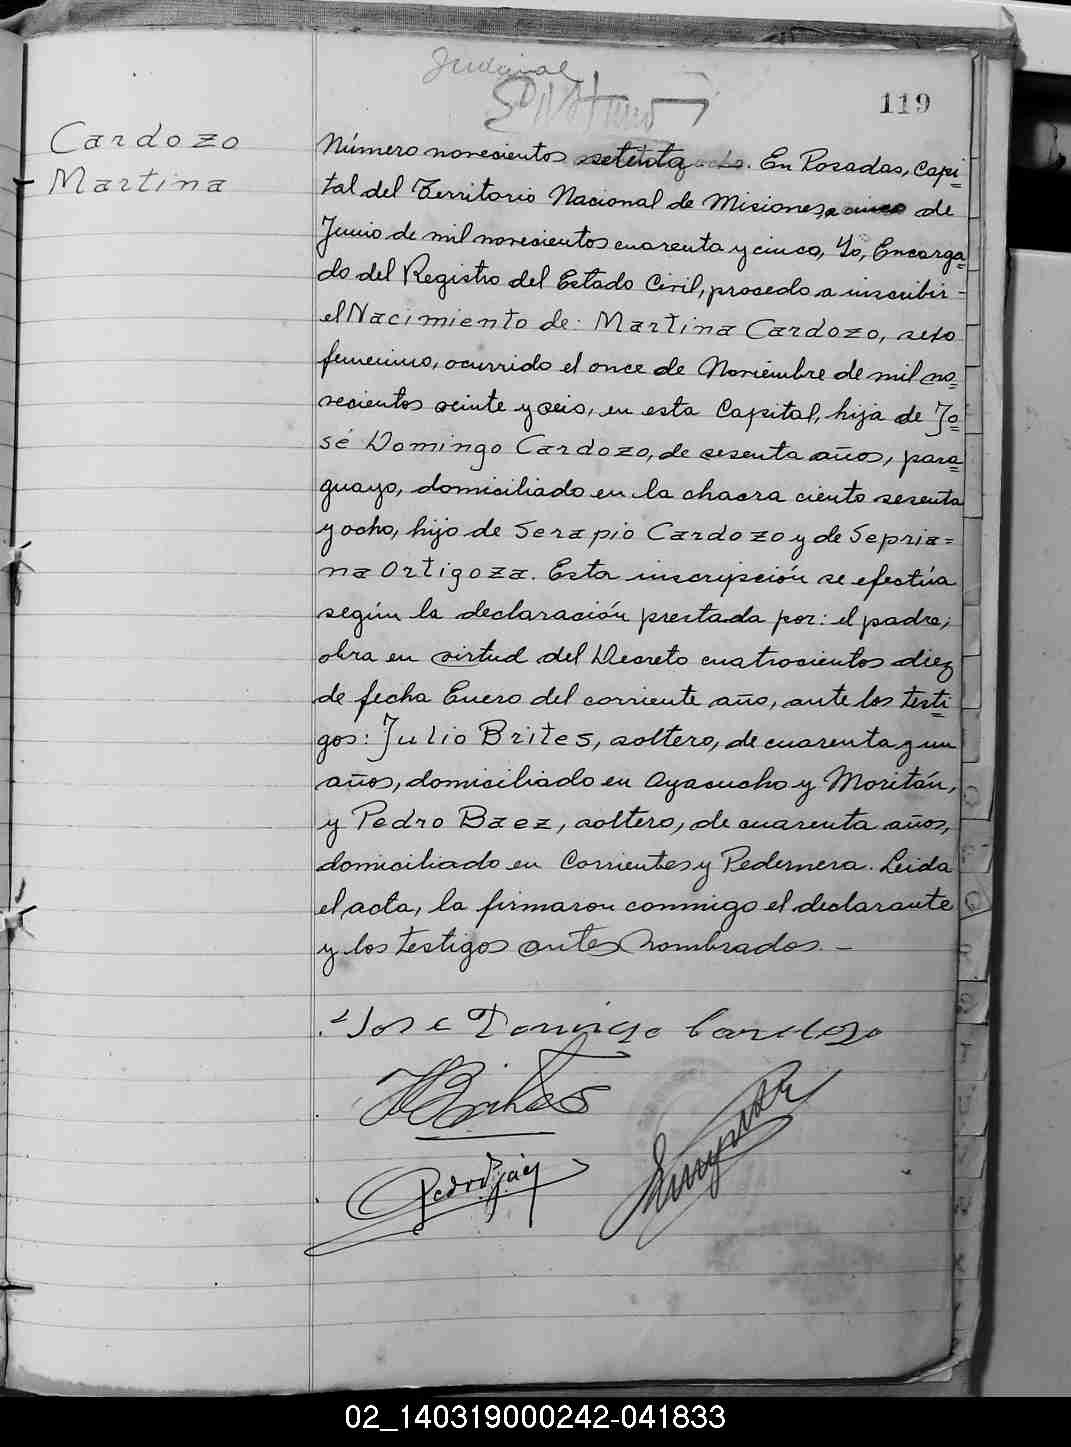 Judicial
119
Cardozo
Martina
Número novecientos setenta ocho. En Posadas, Capi=
tal del Territorio Nacional de Misiones, a cinco de
Junio de mil novecientos cuarenta y cinco, Yo, Encarga=
do del Registro del Estado Civil, procedo a inscribir -
el Nacimiento de: Martina Cardozo, sexo
femenino, ocurrido el once de Noviembre de mil no=
vecientos veinte y seis, en esta Capital, hija de Jo=
sé Domingo Cardozo, de sesenta años, para=
guayo, domiciliado en la chacra ciento sesenta
y ocho, hijo de Serapio Cardozo y de Sepria=
na Ortigoza. Esta inscripción se efectúa
según la declaración prestada por: el padre;
obra en virtud del Decreto cuatrocientos diez
de fecha Enero del corriente año, ante los testi=
gos: Julio Brites, soltero, de cuarenta y un
años, domiciliado en Ayacucho y Moritán,
y Pedro Baez, soltero, de cuarenta años,
domiciliado en Corrientes y Pedernera. Leida
el acta, la firmaron conmigo el declarante
y los testigos antes nombrados. -
José Domingo Cardozo
JBrites
Pedro Báez
02_140319000242-041833